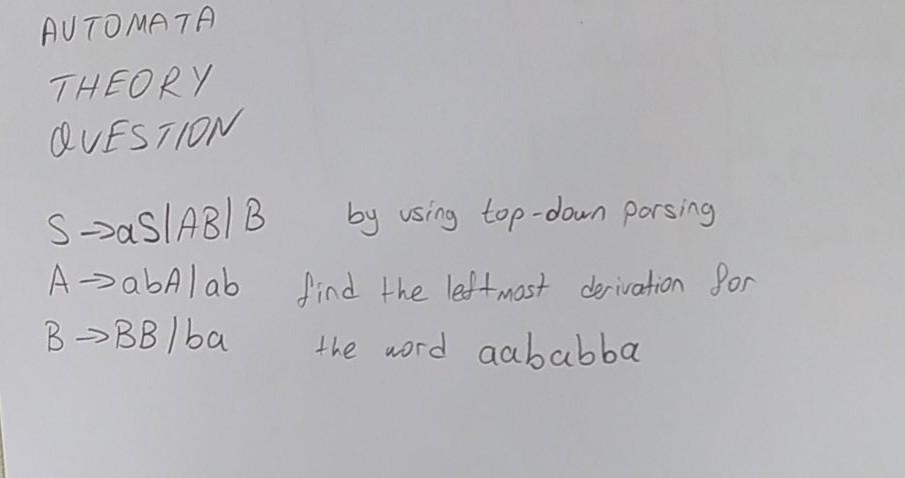 AUTOMATA
THEORY
QUESTION
S→aS|AB|B by using top-down parsing
A→abA|ab find the leftmost derivation for
B→BB|ba the word aababba